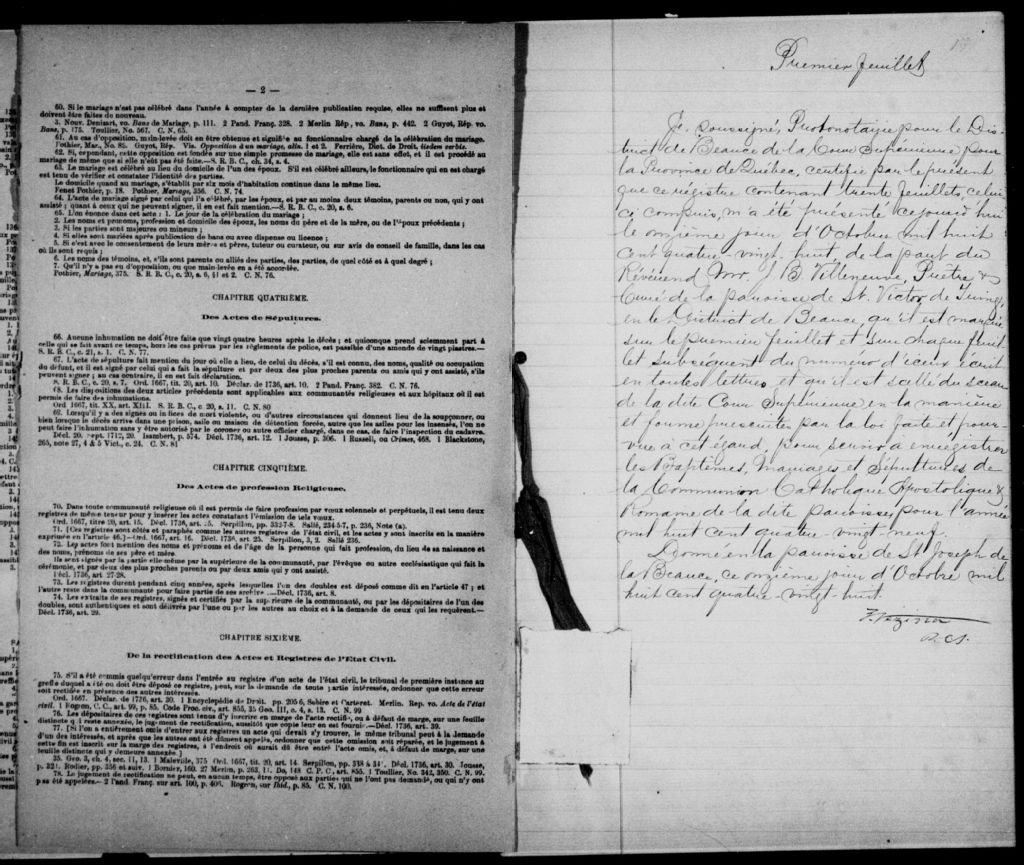 — 2 —
60. Si le mariage n'est pas célébré dans l'année à compter de la dernière publication requise, elles ne suffisent plus et
doivent être faites de nouveau.
3. Nouv. Denizart, vo. Bans de Mariage, p. 111. 2 Pand. Franç. 328. 2 Merlin Rép, vo. Bans, p. 442. 2 Guyot, Rép. vo.
Bans, p. 175. Toullier, No. 567. C. N. 65.
61. Au cas d'opposition, main-levée doit en être obtenue et signifiée au fonctionnaire chargé de la célébration du mariage.
Pothier, Mar., No. 82. Guyot, Rép. Vis. Opposition à un mariage, alin. 1 et 2. Ferrière, Dict. de Droit, iisdem verbis.
62. Si, cependant, cette opposition est fondée sur une simple promesse de mariage, elle est sans effet, et il est procédé au
mariage de même que si elle n'eût pas été faite.—S. R. B. C., ch. 34, s. 4.
63. Le mariage est célébré au lieu du domicile de l'un des époux. S'il est célébré ailleurs, le fonctionnaire qui en est chargé
est tenu de vérifier et constater l'identité des parties.
Le domicile quant au mariage, s'établit par six mois d'habitation continue dans le même lieu.
Fenet Pothier, p. 18. Pothier, Mariage, 356. C. N. 74.
64. L'acte de mariage signé par celui qui l'a célébré, par les époux, et par au moins deux témoins, parents ou non, qui y ont
assisté; quant à ceux qui ne peuvent signer, il en est fait mention.—S. R. B. C., c. 20, s. 6.
65. L'on énonce dans cet acte : 1. Le jour de la célébration du mariage ;
2. Les noms et prénoms, profession et domicile des époux, les noms du père et de la mère, ou de l'époux précédents ;
3. Si les parties sont majeures ou mineures ;
4. Si elles sont mariées après publication de bans ou avec dispense ou licence ;
5. Si c'est avec le consentement de leurs mère et pères, tuteur ou curateur, ou sur avis de conseil de famille, dans les cas
où ils sont requis ;
6. Les noms des témoins, et, s'ils sont parents ou alliés des parties, des parties, de quel côté et à quel degré ;
7. Qu'il n'y a pas eu d'opposition, ou que main-levée en a été accordée.
Pothier, Mariage, 375. S. R. B. C., c. 20, s. 6, §1 et 2. C. N. 76.
CHAPITRE QUATRIÈME.
Des Actes de Sépultures.
66. Aucune inhumation ne doit être faite que vingt quatre heures après le décès ; et quiconque prend sciemment part à
celle qui se fait avant ce temps, hors les cas prévus par les règlements de police, est passible d'une amende de vingt piastres.—
S. R. B. C., c. 21, s. 1. C. N. 77.
67. L'acte de sépulture fait mention du jour où elle a lieu, de celui du décès, s'il est connu, des noms, qualité ou occupation
du défunt, et il est signé par celui qui a fait la sépulture et par deux des plus proches parents ou amis qui y ont assisté, s'ils
peuvent signer ; au cas contraire, il en est fait déclaration.
S. R. B. C., c. 20, s. 7. Ord. 1667, tit. 20, art. 10. Déclar. de 1736, art. 10. 2 Pand. Franç. 382. C. N. 76.
68. Les dispositions des deux articles précédents sont applicables aux communautés religieuses et aux hôpitaux où il est
permis de faire des inhumations.
Ord 1667, tit. XX, art. XIII. S. R. B. C., c. 20, s. 11. C. N. 80
69. Lorsqu'il y a des signes ou indices de mort violente, ou d'autres circonstances qui donnent lieu de la soupçonner, ou
bien lorsque le décès arrive dans une prison, asile ou maison de détention forcée, autre que les asiles pour les insensés, l'on ne
peut faire l'inhumation sans y être autorisé par le coroner ou autre officier chargé, dans ce cas, de faire l'inspection du cadavre.
Décl. 20. sept. 1712, 20 Isambert, p. 574. Décl. 1736, art. 12. 1 Jousse, p. 306. 1 Russell, ou Crimes, 468. 1 Blackstone,
265, note 27, 4 & 5 Vict., c. 24. C. N. 81
CHAPITRE CINQUIÈME.
Des Actes de profession Religieuse.
70. Dans toute communauté religieuse où il est permis de faire profession par vœux solennels et perpétuels, il est tenu deux
registres de même teneur pour y insérer les actes constatant l'émission de tels vœux.
Ord. 1667, titre 20, art. 15. Décl. 1736, art. 25. Serpillon, pp. 332-7-8. Sallé, 234-5-7, p. 236, Note (a).
71. [Ces registres sont côtés et paraphés comme les autres registres de l'état civil, et les actes y sont inscrits en la manière
exprimée en l'article 46.]—Ord. 1667, art. 16. Décl. 1736, art. 25. Serpillon, 3, 2. Sallé 236.
72. Les actes font mention des noms et prénoms et de l'âge de la personne qui fait profession, du lieu de sa naissance et
des noms, prénoms de ses père et mère.
Ils sont signés par la partie elle-même par la supérieure de la communauté, par l'évêque ou autre ecclésiastique qui fait la
cérémonie, et par deux des plus proches parents ou par deux amis qui y ont assisté.
Décl. 1736, art. 27-28.
73. Les registres durent pendant cinq années, après lesquelles l'un des doubles est déposé comme dit en l'article 47 ; et
l'autre reste dans la communauté pour faire partie de ses archives.—Décl. 1736, art. 8.
74. Les extraits de ces registres, signés et certifiés par la supérieure de la communauté, ou par les dépositaires de l'un des
doubles, sont authentiques et sont délivrés par l'une ou par les autres au choix et à la demande de ceux qui les requèrent.—
Décl. 1736, art. 29.
CHAPITRE SIXIÈME.
De la rectification des Actes et Registres de l'Etat Civil.
75. S'il a été commis quelqu'erreur dans l'entrée au registre d'un acte de l'état civil, le tribunal de première instance au
greffe duquel a été ou doit être déposé ce registre, peut, sur la demande de toute partie intéressée, ordonner que cette erreur
soit rectifiée en présence des autres intéressés.
Ord. 1667. Déclar. de 1736, art. 30. 1 Encyclopédie de Droit. pp. 205 6, Sabire et Carteret. Merlin. Rep. vo. Acte de l'état
civil. 1 Rogron, C. C., art. 99, p. 85. Code Proc. civ., art. 855, 35 Geo. III, c. 4, s. 13. C. N. 99
76. Les dépositaires de ces registres sont tenus d'y inscrire en marge de l'acte rectifié, ou à défaut de marge, sur une feuille
distincte qui reste annexée, le jugement de rectification, aussitôt que copie leur en est fournie.—Décl. 1736, art. 39.
77. [Si l'on a entièrement omis d'entrer aux registres un acte qui devait s'y trouver, le même tribunal peut à la demande
d'un des intéressés, et après que les autres ont été dûment appelés, ordonner que cette omission soit réparée, et le jugement à
cette fin est inscrit sur la marge des registres, à l'endroit où aurait dû être entré l'acte omis, et, à défaut de marge, sur une
feuille distincte qui y demeure annexée.]
35. Geo. 3, ch. 4, sec. 11, 13. 1 Maleville, 375 Ord. 1667, tit. 20, art. 14. Serpillon, pp. 338 & 34 . Décl. 1736, art. 30. Jousse,
p. 32 . Rodier, pp. 356 et suiv. 1 Bornier, 160. 27 Merlin, p. 263, 1 . Do, 148. C. P. C., art. 855. 1 Toullier, No. 342, 350. C. N. 99.
78. Le jugement de rectification ne peut, en aucun temps, être opposé aux parties qui ne l'ont pas demandé, ou qui n'y ont
pas été appelées.—2 Pand. Franç. sur art. 100, p. 406. Rogron, sur Ibid., p. 85. C. N. 100.
Premier feuillet
Je, soussigné, Protonotaire pour le Dis-
trict de Beauce de la Cour Supérieure pour
la Province de Québec, certifie par le présent
que ce régistre contenant trente feuillets, celui
ci compris, m'a été présenté cejourd'hui
le onzième jour d'Octobre mil huit
cent quatre-vingt-huit, de la part du
Révérend Mr. J B Villeneuve, Prêtre &
Curé de la paroisse de St. Victor de Tring,
en le District de Beauce, qu'il est marqué
sur le premier feuillet et sur chaque feuil-
let subséquent du numéro d'iceux écrit
en toutes lettres, et qu'il est scellé du sceau
de la dite Cour Supérieure en la manière
et forme prescrites par la loi faite et pour-
vue à cet égard, pour servir à enregistrer
les Baptêmes, Mariages et Sépultures de
la Communion Catholique Apostolique &
Romaine de la dite paroisse, pour l'année
mil huit cent quatre-vingt-neuf.
Donné en la paroisse de St Joseph de
la Beauce, ce onzième jour d'Octobre mil
huit cent quatre-vingt-huit.
Z. Vézina
P. C. S.